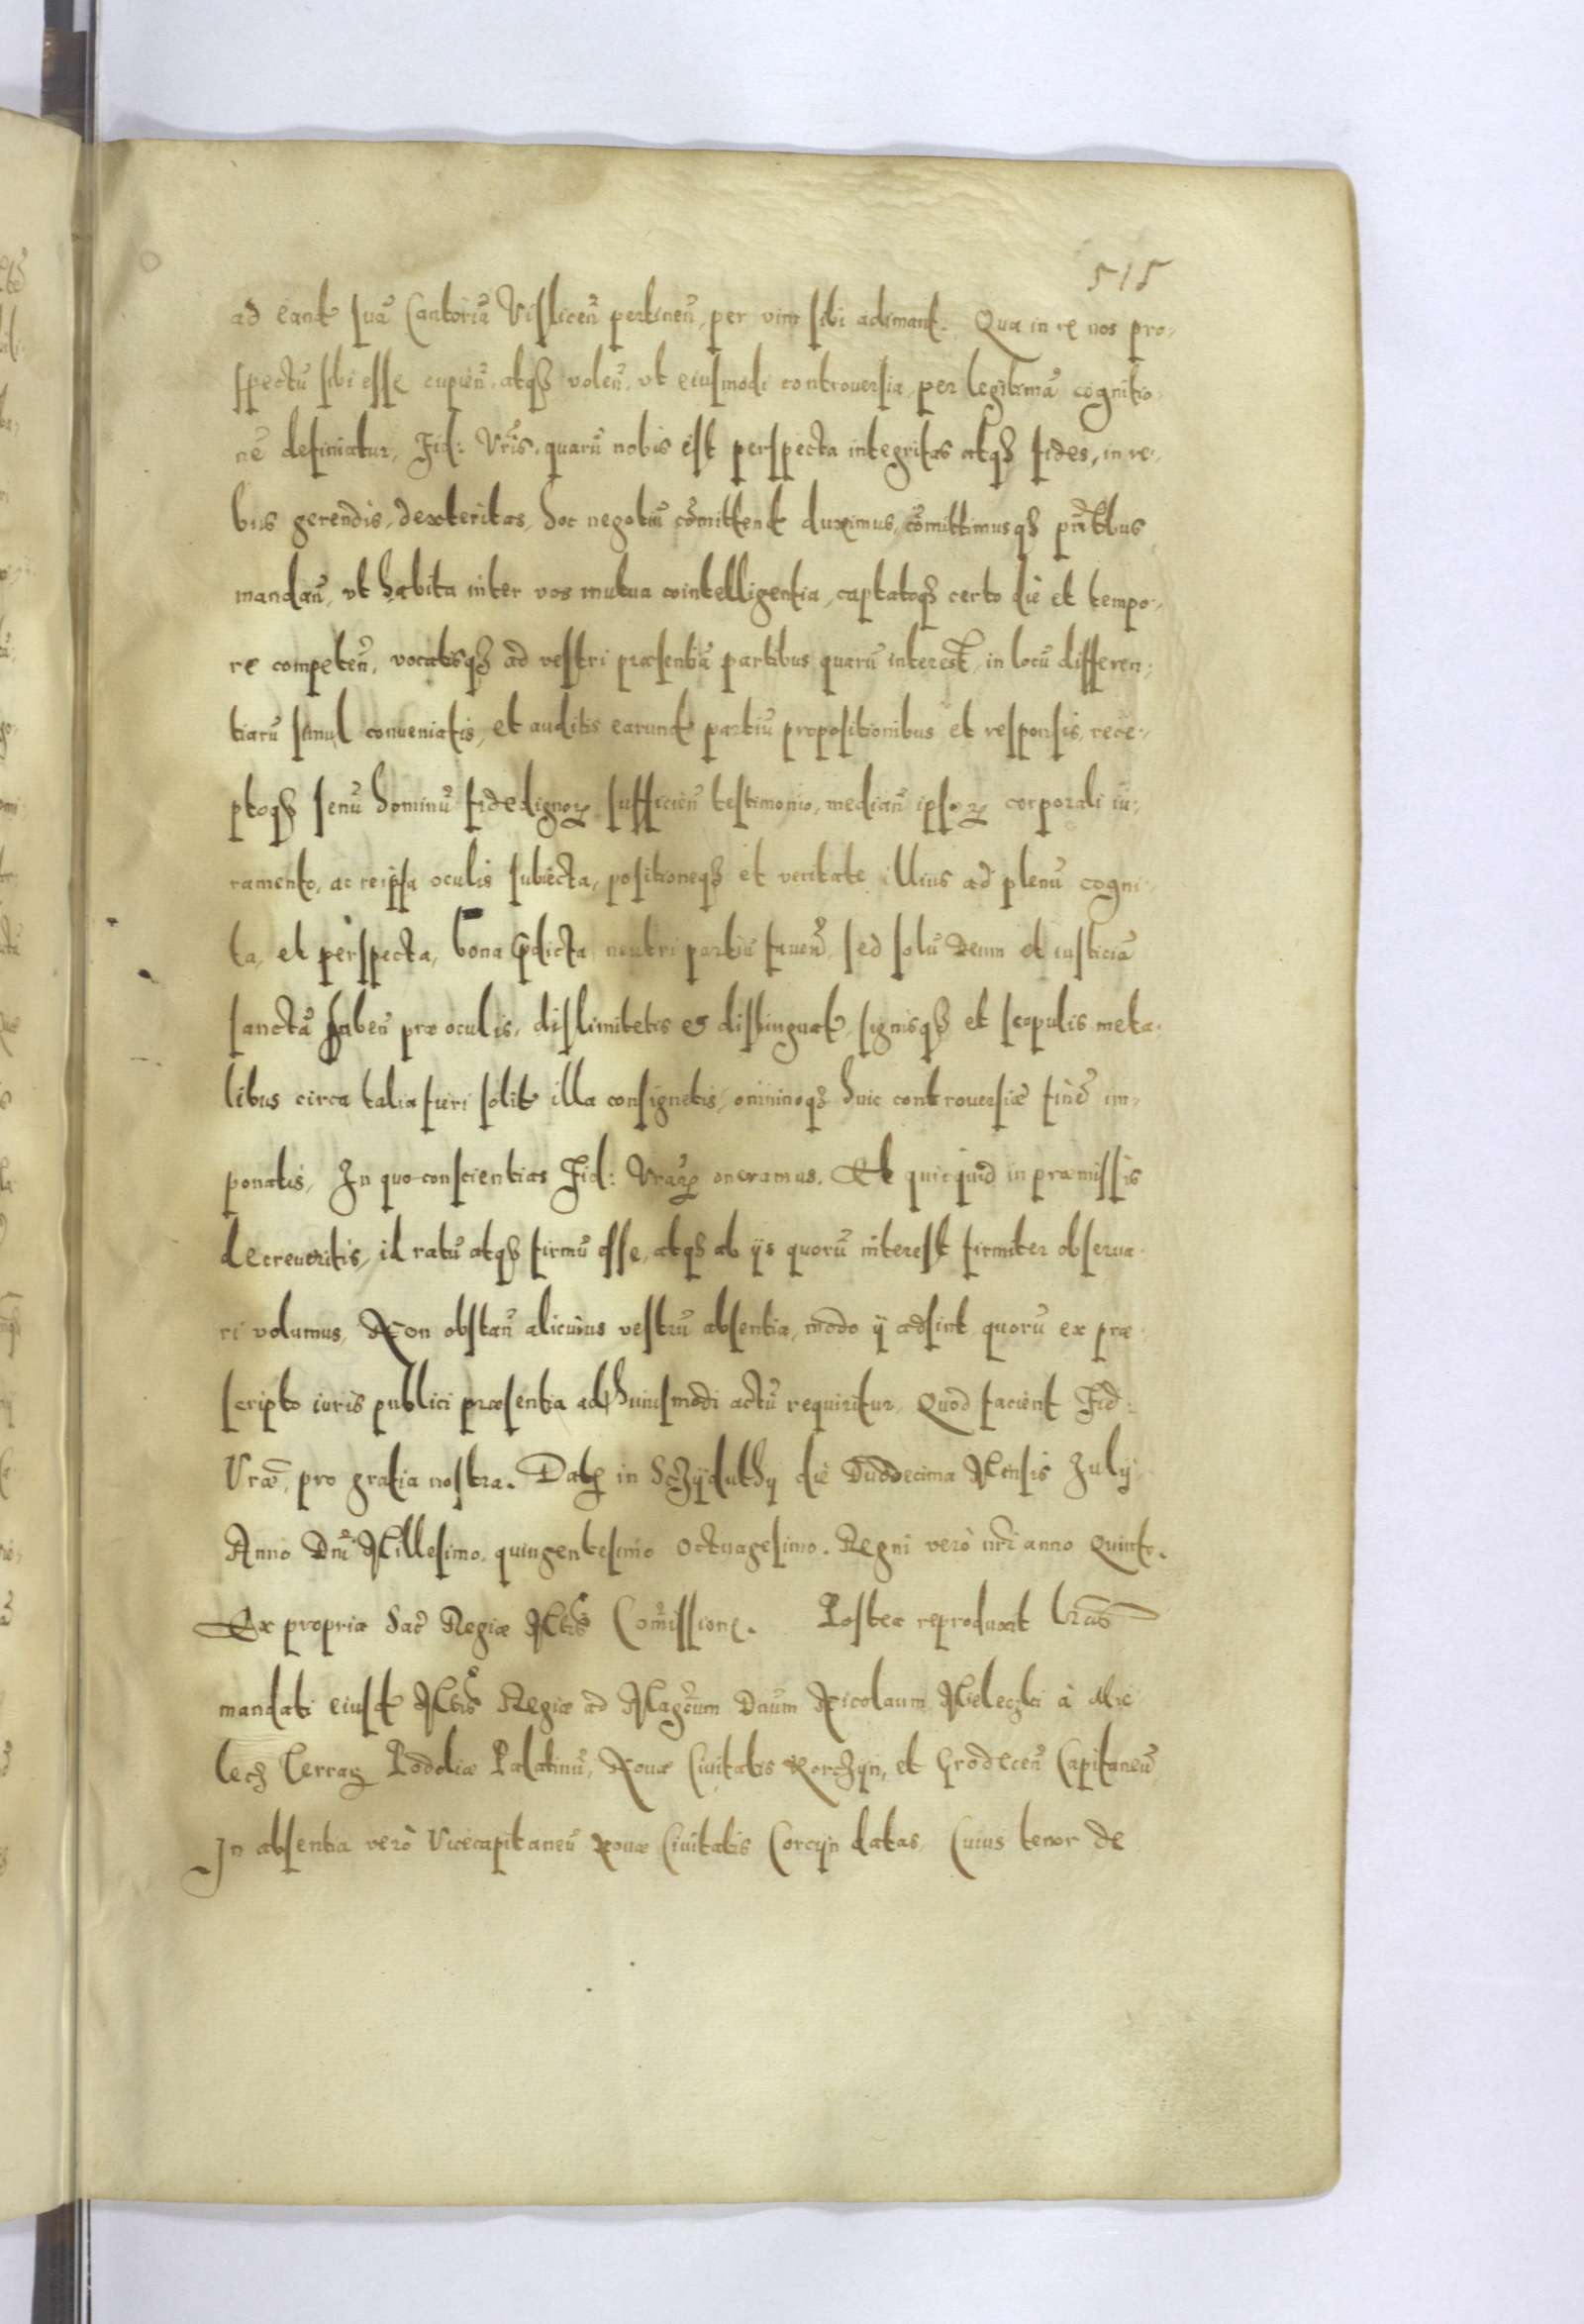 515
ad eand suā Cantoriā Visliceñ pertineñ, per vim sibi adimant. Qua in re nos pro-
spectū sibi esse cupieñ, atqз voleñ, vt eiusmodi controuersia, per legitimā cognitio-
nē definiatur, Fid: Vrīs, quarū nobis est perspecta integritas atqз fides, in re-
bus gerendis, dexteritas, hoc negotiū cōmittend duximus, cōmittimusqз pñtbus
mandañ, vt habita inter vos mutua cointelligentia, captatoqз certo die et tempo-
re competeñ, vocatisqз ad vestri præsentiā partibus quarū interest, in locū differen-
tiarū simul conueniatis, et auditis earund partiū propositionibus et responsis, rece-
ptoqз senū hominū fidedignoꝝ sufficieñ testimonio, mediañ ipsoꝝ corporali iu-
ramento, ac reipsa oculis subiecta, positioneqз et veritate illius ad plenū cogni-
ta, et perspecta, bona p̄dicta neutri partiū faueñ, sed solū Deum et iusticiā
sanctā habeñ præ oculis, dislimitetis et distinguat, signisqз et scopulis meta-
libus circa talia fieri solit illa consignetis, omninoqз huic controuersiæ finē im-
ponatis, In quo conscientias Fid: Vraꝝ oneramus. Et quicquid in præmissis
decreueritis, id ratū atqз firmū esse, atqз ab ijs quorū interest firmiter obserua-
ri volumus, Non obstañ alicuius vestrū absentia, modo ij adsint quorū ex præ-
scripto iuris publici præsentia ad huiusmodi actū requiritur, Quod facient Fid:
Vræ, pro gratia nostra. Datꝝ in die Duodecima Mensis Julij
Anno Dñi Millesimo, quingentesimo Octuagesimo. Regni verò nr̄i anno Quinto.
Ex propria Sac̄ Regiæ Mtis Com̄issione. Postea reproduxit lr̄as
mandati eiusd Mtis Regiæ ad Magc̄um Dnūm Nicolaum Mieleczki à Mie-
lecz Terraꝝ Podoliæ Palatinū, Nouæ Ciuitatis Korczyn, et Grodeceñ Capitaneū
In absentia verò Vicecapitaneū Nouæ Ciuitatis Corcyn datas, Cuius tenor de